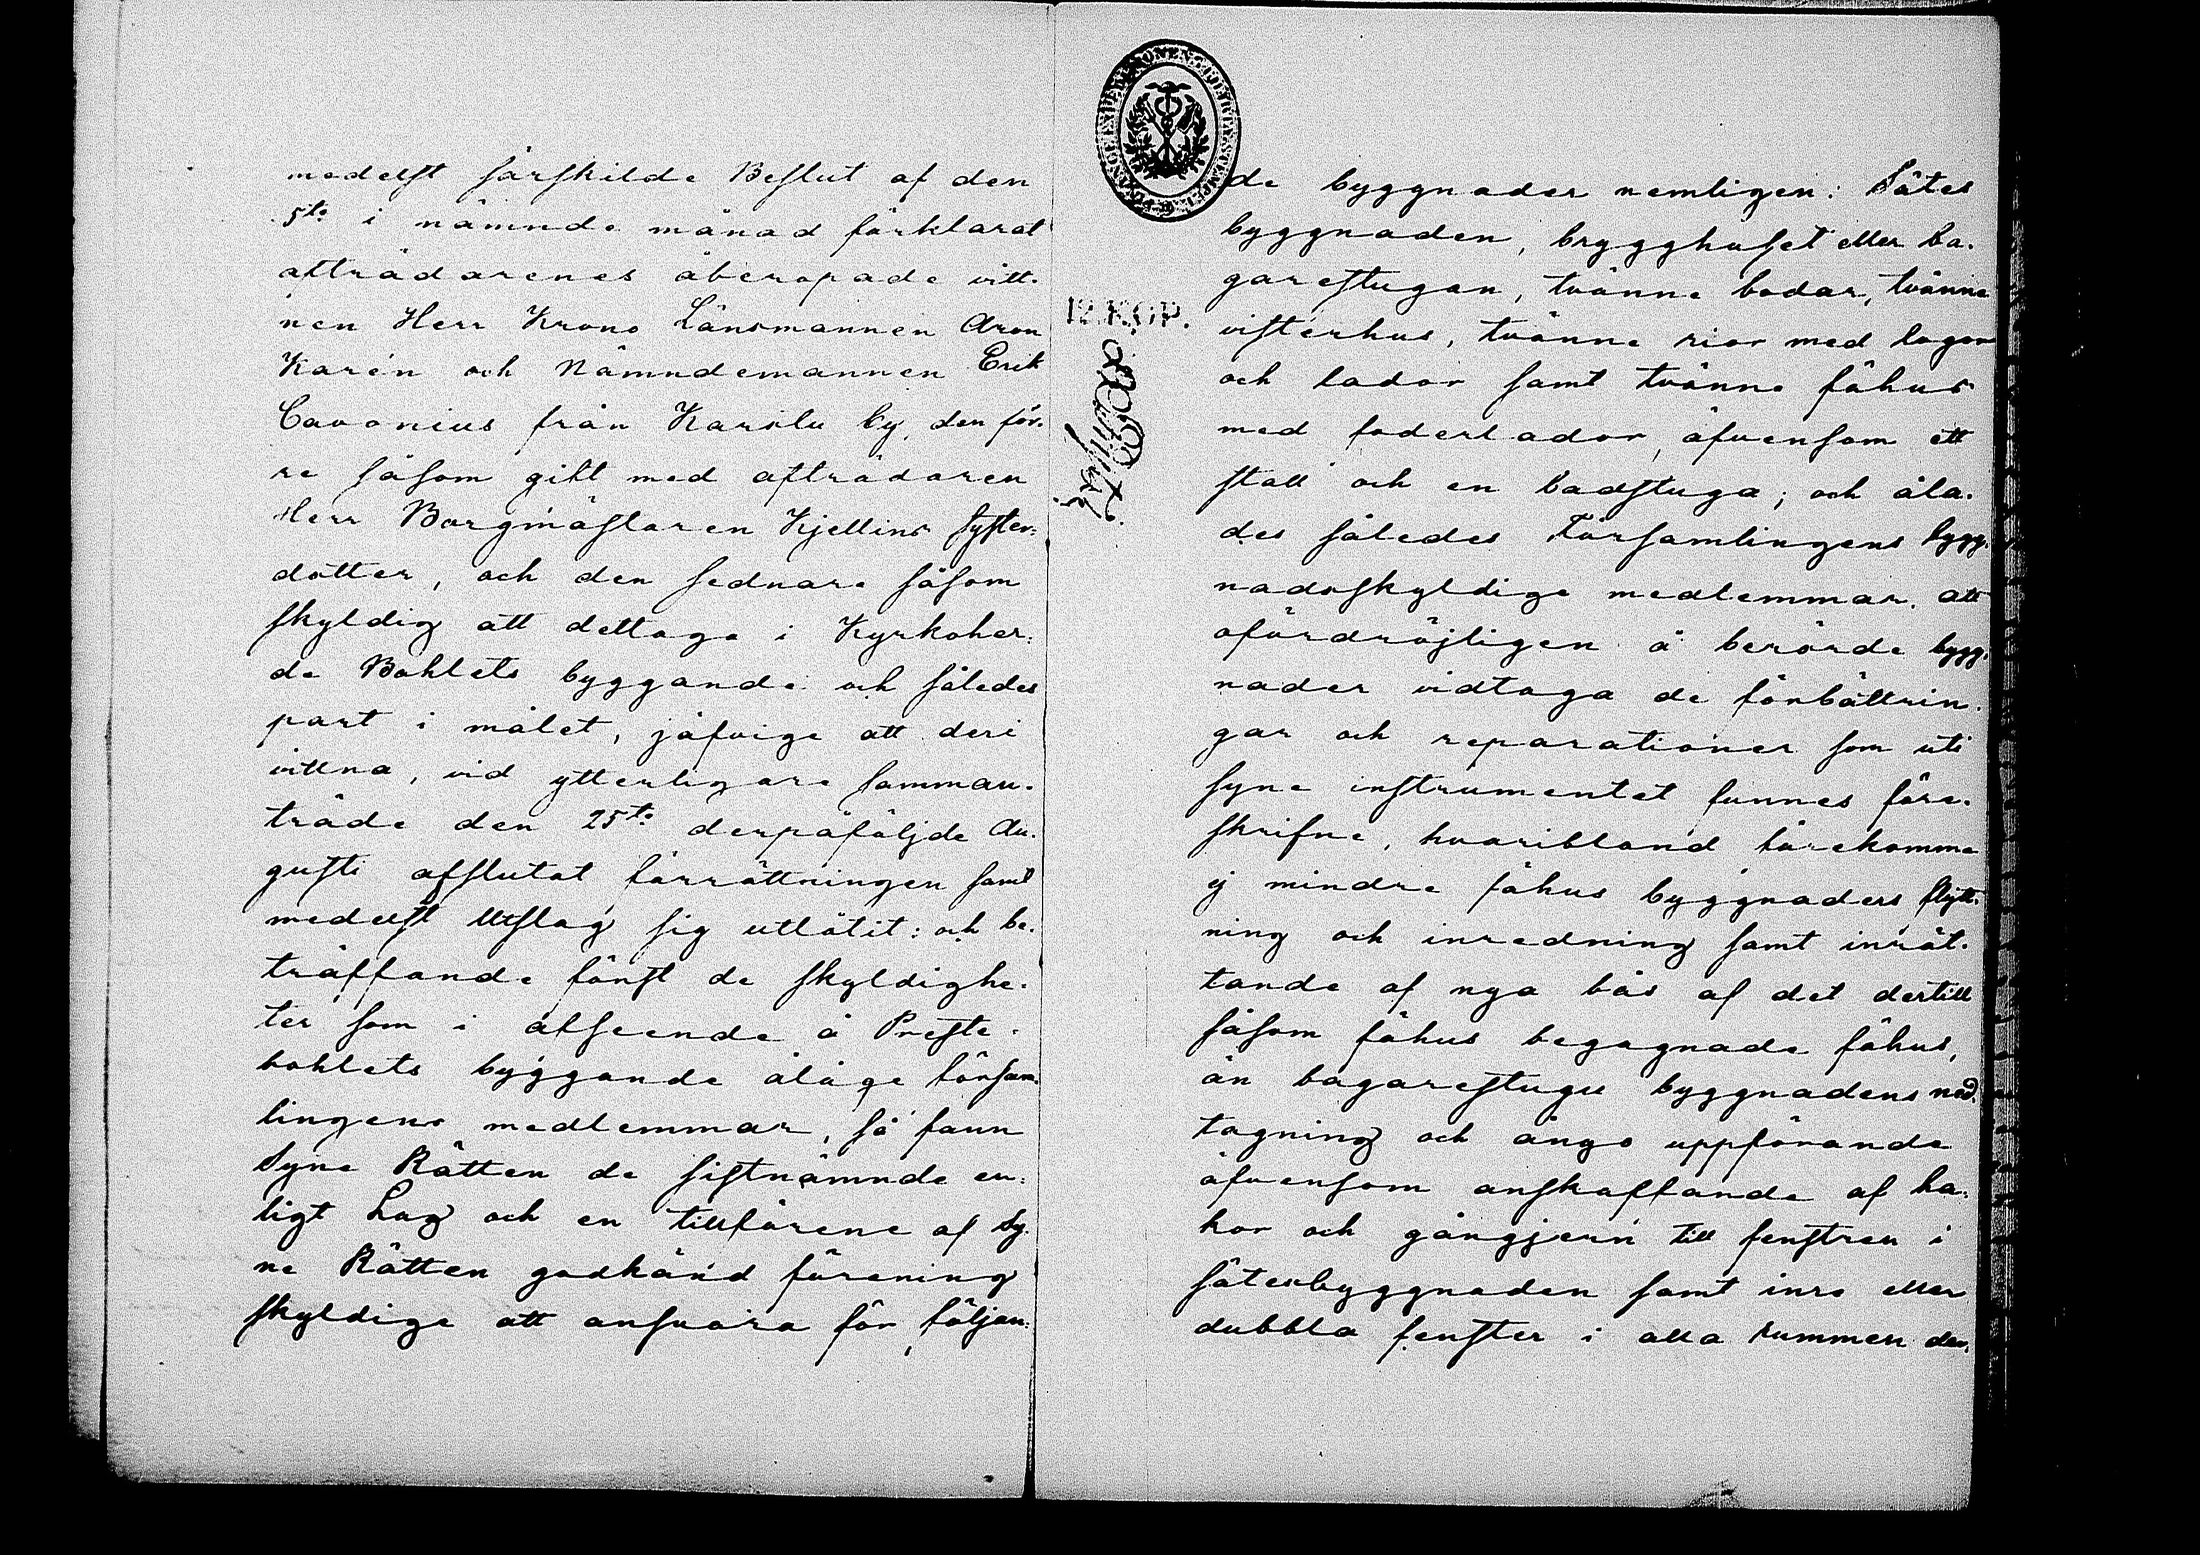 medelst särskilde Beslut af den
5te i nämnde månad förklarat
afträdarenes åberopade vitt-
nen Herr Krono Länsmannen Aron
Karén och Nämndemannen Erik
Cavonius från Karilu by, den för-
re såsom gift med afträdaren
Herr Borgmästaren Kjellins syster-
dotter, och den sednare såsom
skyldig att deltaga i Kyrkoher-
de Bohlets byggande och således
part i målet, jäfvige att deri
vittna, vid ytterligare samman-
träde den 25te derpåföljde Au-
gusti afslutat förrättningen samt
medelst Utslag sig utlåtit: och be-
träffande först de skyldighe-
ter som i afseende å Preste-
bohlets byggande åläge försam-
lingens medlemmar, så fann
Syne Rätten de sistnämnde en-
ligt Lag och en tillförene af Sy-
ne Rätten godkänd förening
skyldige att ansvara för följan-
12 KOP.
de byggnader nemligen: Sätes
byggnaden, brygghuset eller ba-
garestugan, tvänne bodar, tvänne
visterhus, tvänne rior med logar
och lador samt tvänne fähus
med foderlador, äfvensom ett
stall och en badstuga; och åla-
des således Församlingens bygg-
nadsskyldige medlemmar, att
ofördröjligen å berörde bygg-
nader vidtaga de förbättrin-
gar och reparationer som uti
syne instrumentet funnes före-
skrifne, hvaribland förekomme
ej mindre fähus byggnaders flytt-
ning och inredning samt inrät-
tande af nya bås af det dertill
såsom fähus begagnade fähus,
än bagarestugu byggnadens ned-
tagning och ångo uppförande
äfvensom anskaffande af ha-
kor och gångjern till fenstren i
sätesbyggnaden samt inre eller
dubbla fenster i alla rummen der-